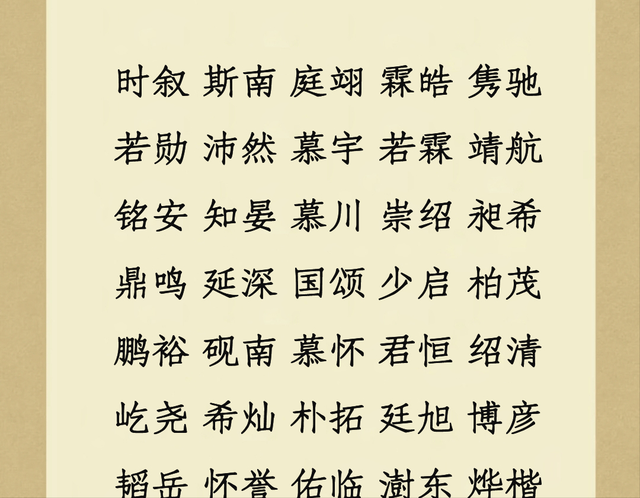 时叙 斯南 庭翊 霖皓 隽驰
若勋 沛然 慕宇 若霖 靖航
铭安 知晏 慕川 崇绍 昶希
鼎鸣 延深 国颂 少启 柏茂
鹏裕 砚南 慕怀 君恒 绍清
屹尧 希灿 朴拓 廷旭 博彦
韬岳 怀誉 佑临 澍东 烨楷